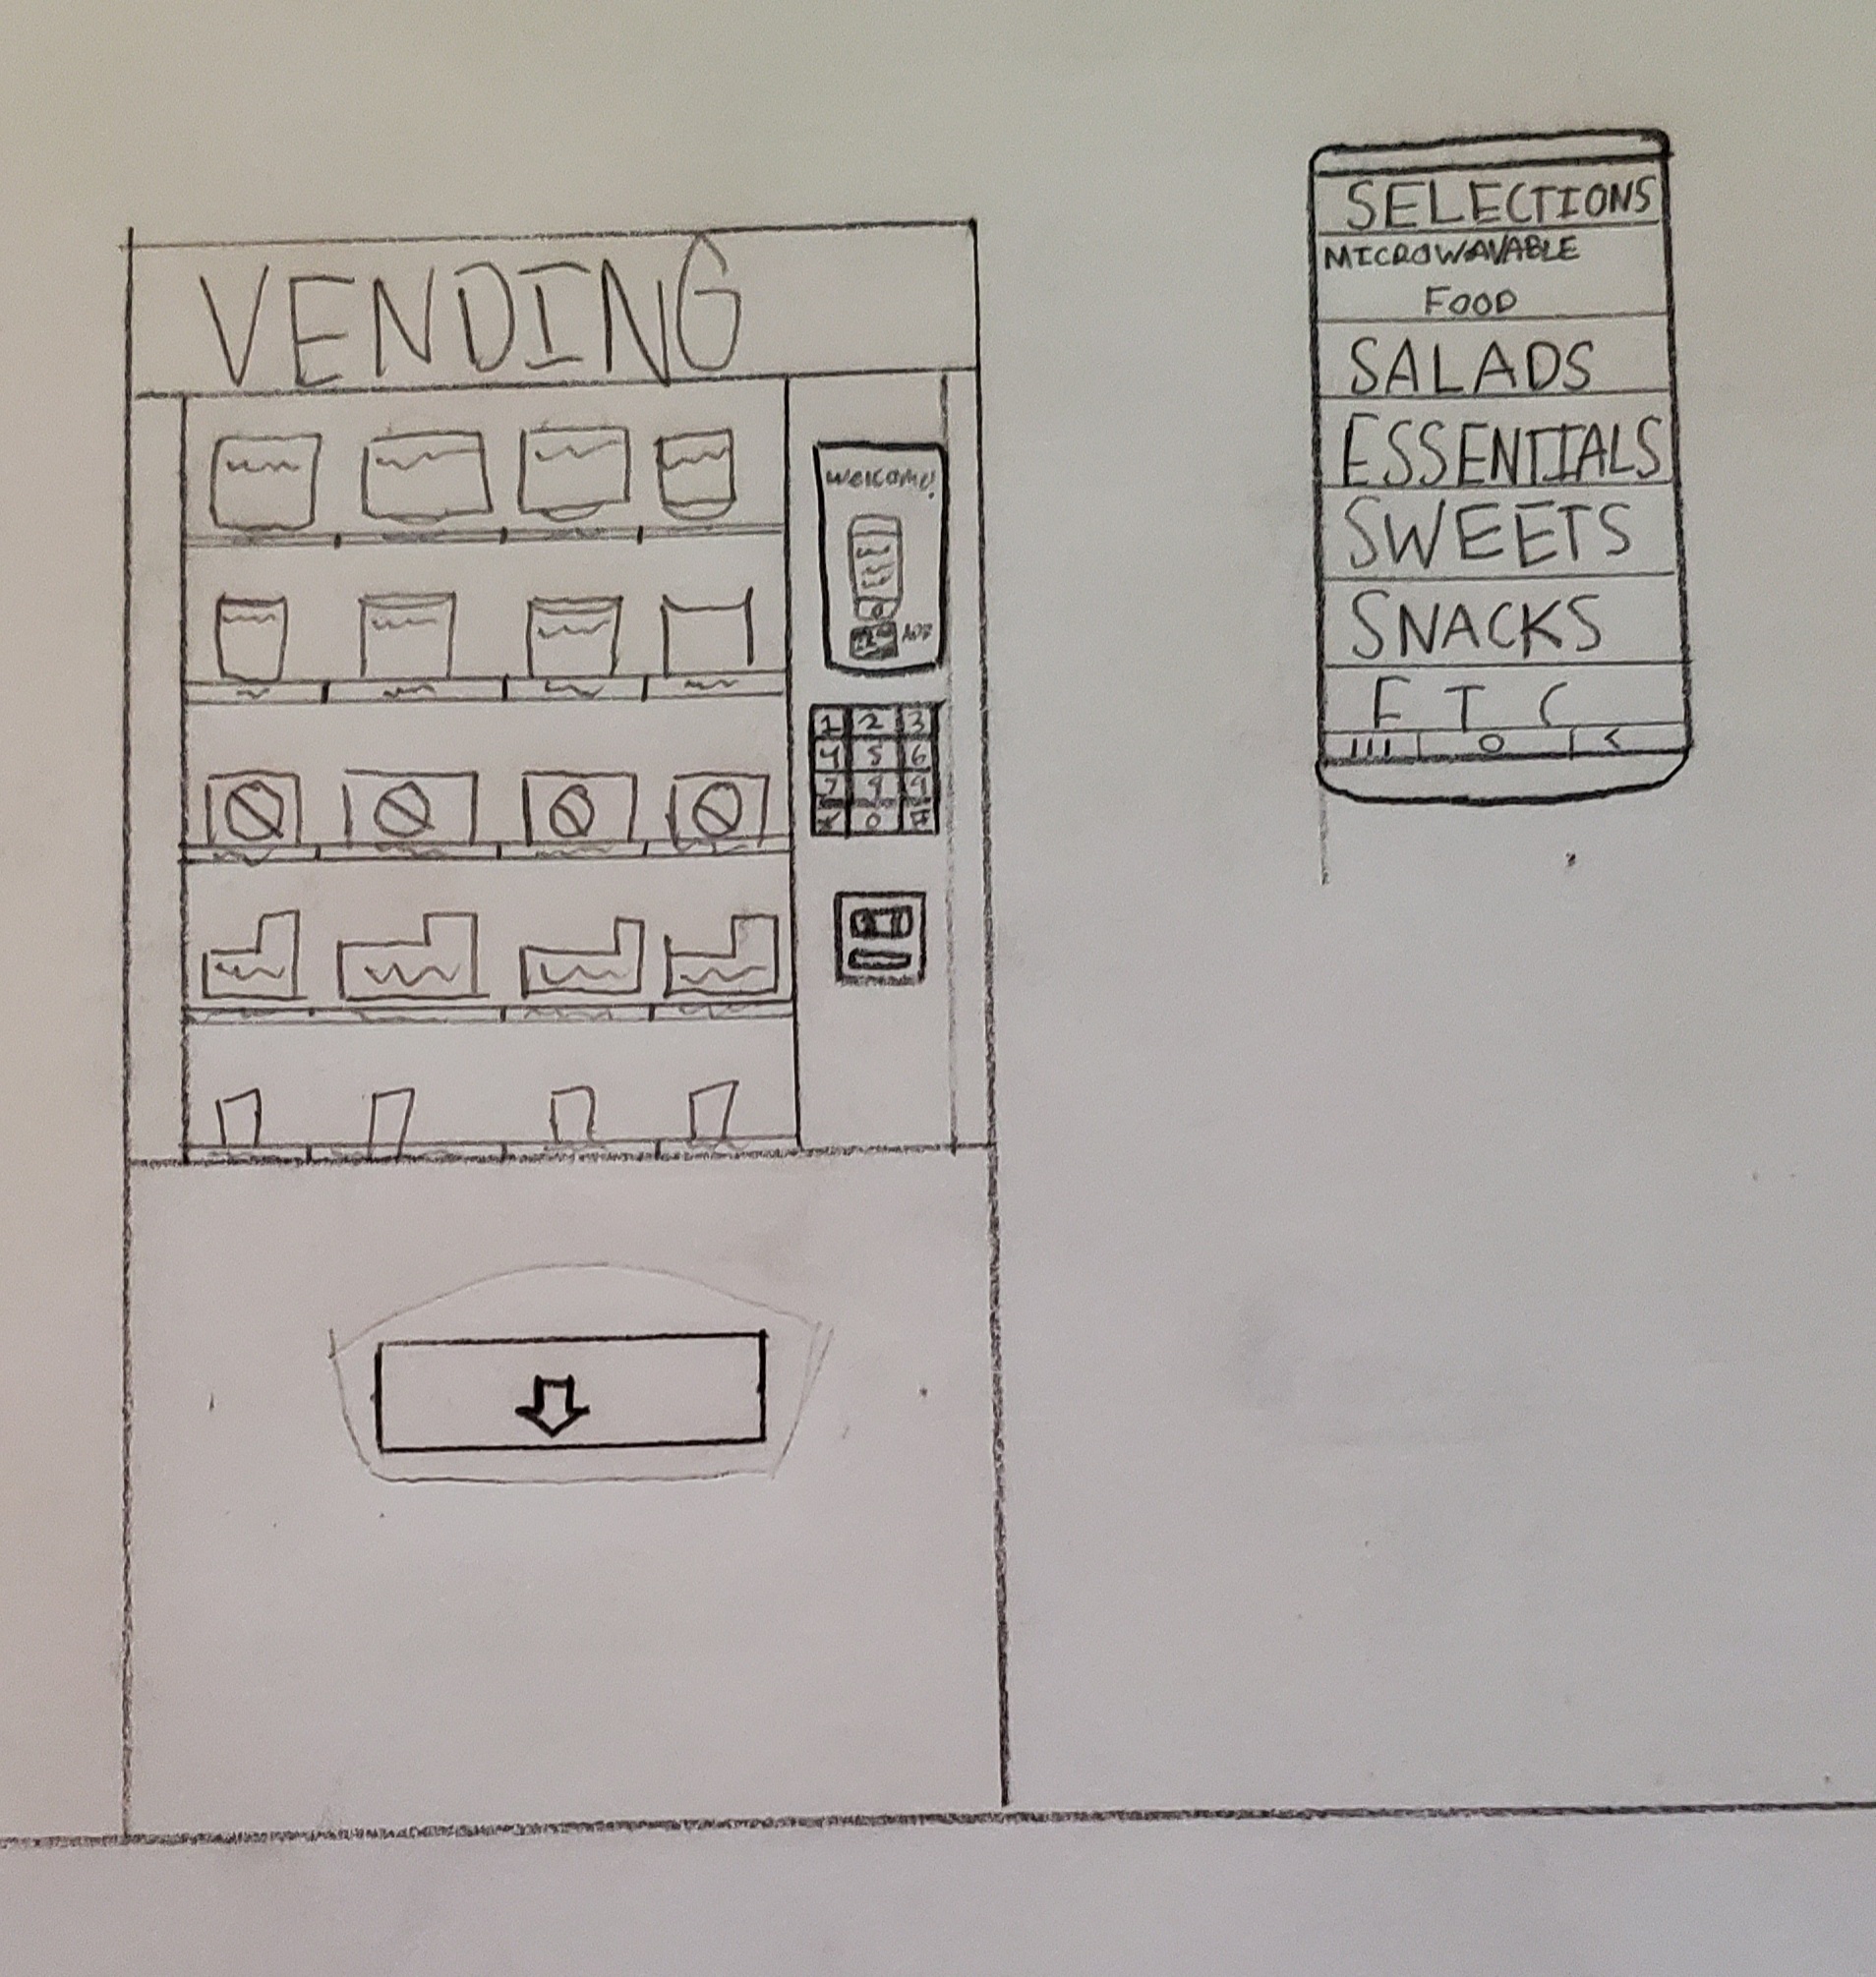 VENDING
WELCOME!
APP
1 2 3
4 5 6
7 8 9
* 0 #
SELECTIONS
MICROWAVABLE
FOOD
SALADS
ESSENTIALS
SWEETS
SNACKS
ETC